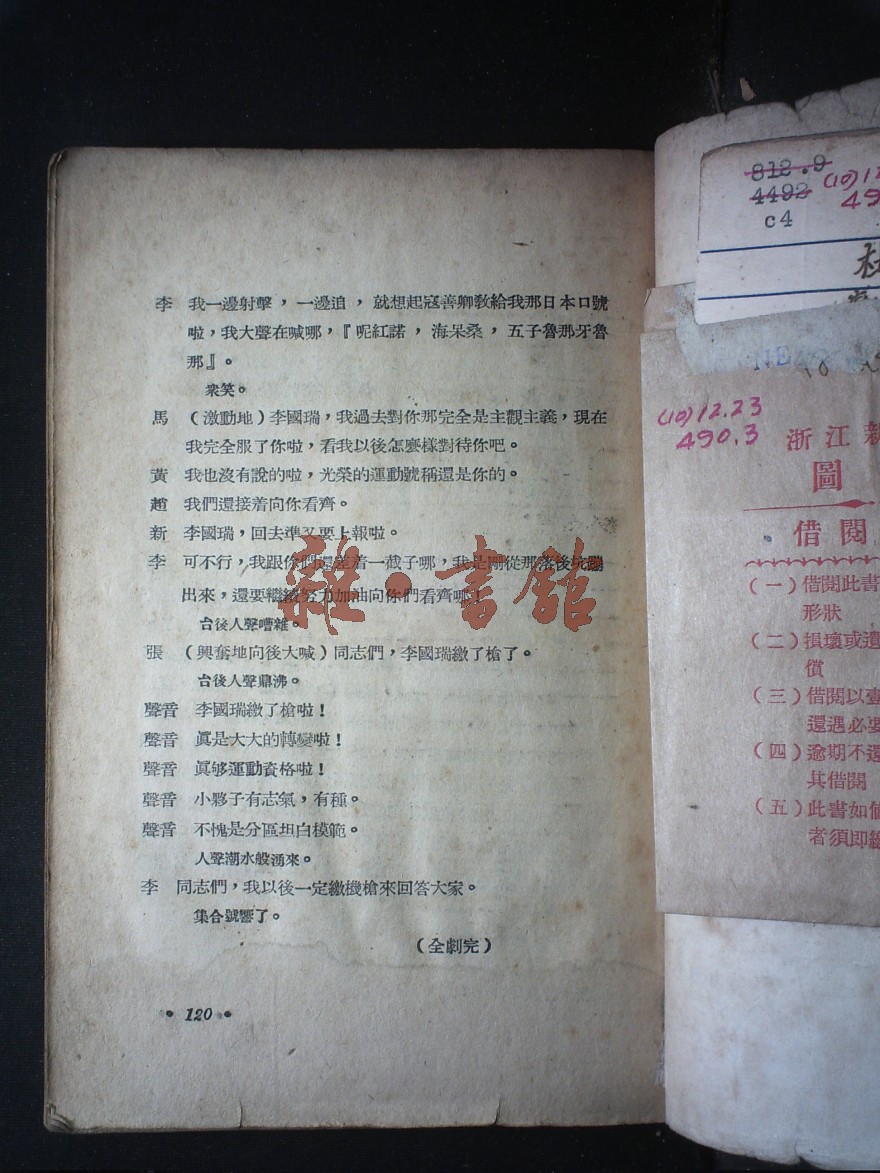 李 我一邊射擊，一邊追，就想起寇善卿教給我那日本口號
啦，我大聲在喊哪，『呢紅諾，海呆桑，五子魯那牙魯
那』。
衆笑。
馬 （激動地）李國瑞，我過去對你那完全是主觀主義，現在
我完全服了你啦，看我以後怎麼樣對待你吧。
黃 我也沒有說的啦，光榮的運動號稱還是你的。
趙 我們還接着向你看齊。
新 李國瑞，回去準又要上報啦。
李 可不行，我跟你們還差着一截子哪，我是剛從那落後坑
出來，還要繼續努力加油向你們看齊哪！
台後人聲嘈雜。
張 （興奮地向後大喊）同志們，李國瑞繳了槍了。
台後人聲鼎沸。
聲音 李國瑞繳了槍啦！
聲音 眞是大大的轉變啦！
聲音 眞够運動資格啦！
聲音 小夥子有志氣，有種。
聲音 不愧是分區坦白模範。
人聲潮水般湧來。
李 同志們，我以後一定繳機槍來回答大家。
集合號響了。
（全劇完）
• 120 •
雜·書館
812.9
4492
c4
(10)12.23
490.3
浙江新
圖
借閱
（一）借閱此書
形狀
（二）損壞或遺
償
（三）借閱以壹
還遇必要
（四）逾期不還
其借閱
（五）此書如
者須即